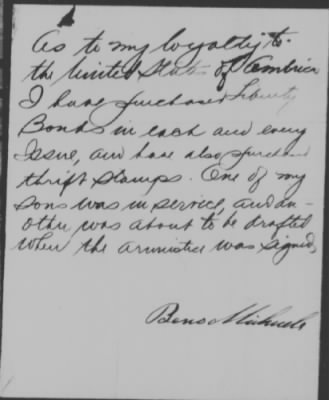 As to my loyalty to
the United States of America
I have purchased Liberty
Bonds in each and every
Issue, and have also purchased
thrift stamps. One of my
sons was in service, and an-
other was about to be drafted
when the armistice was signed,
Beno Michaels